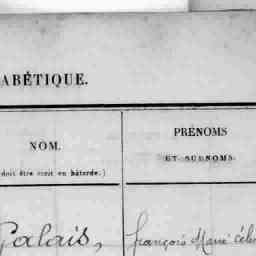 ABÉTIQUE.
NOM.
PRÉNOMS
ET SURNOMS.
doit être écrit en bâtarde.)
Galais, françois Marie